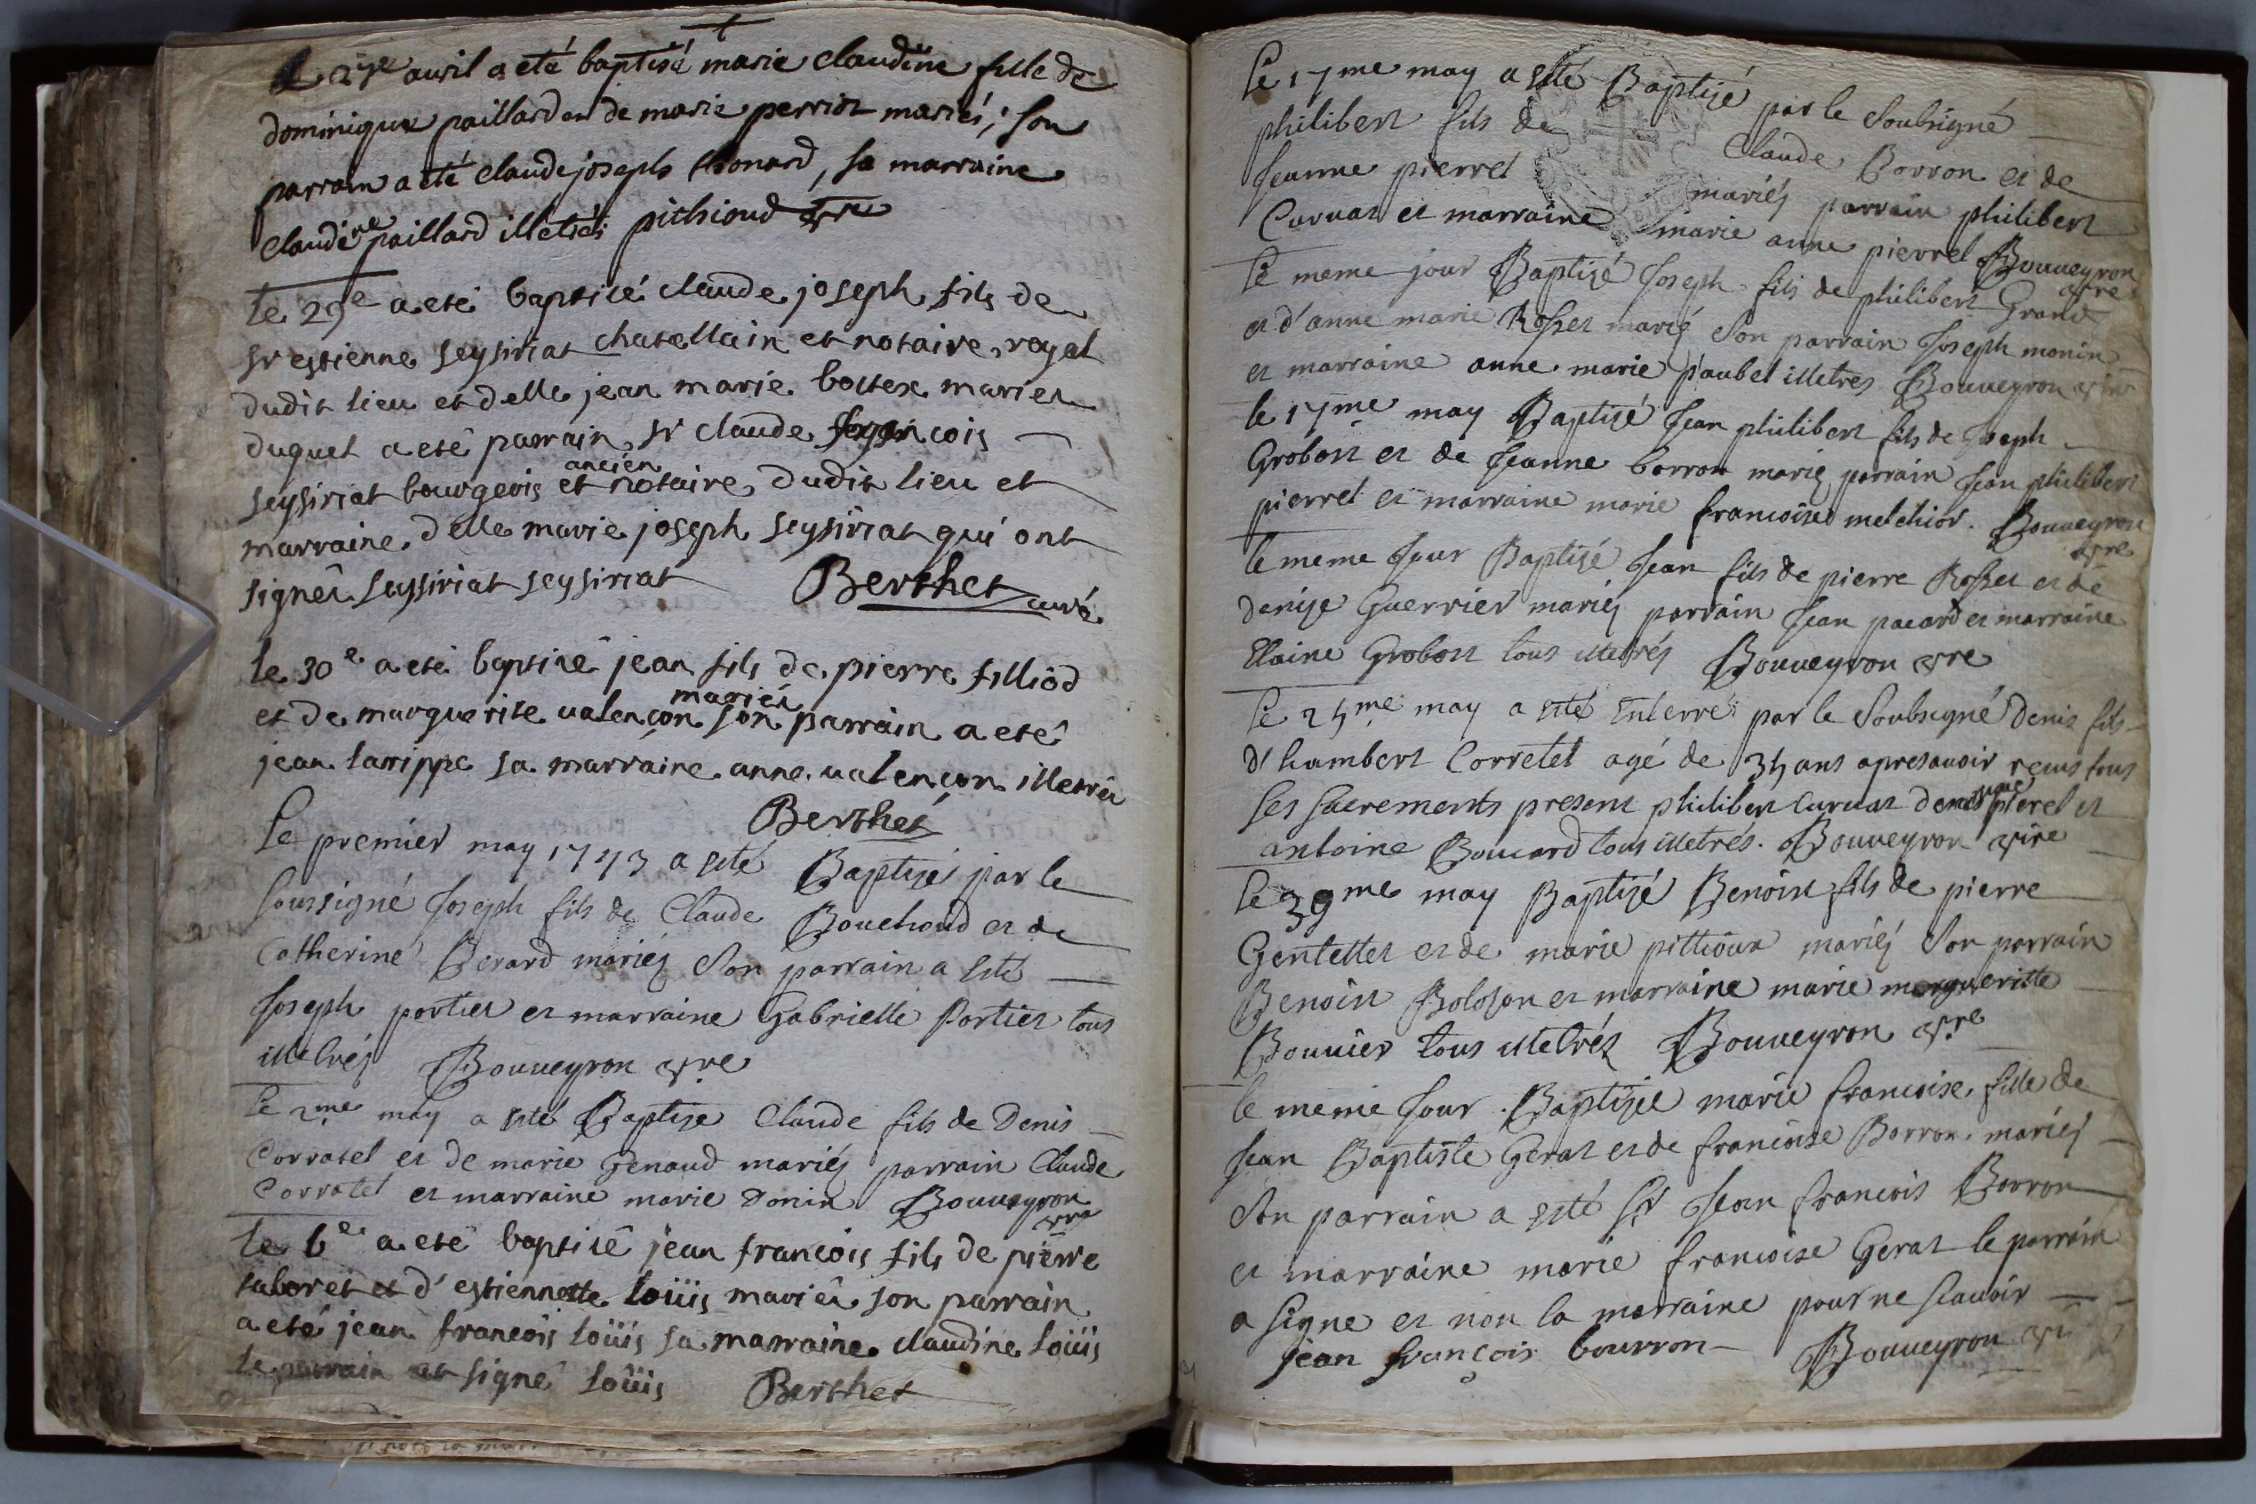 avril a eté baptisé marie claudine fille de
dominique paillard et de marie perriot mariés; son
parrain a été claude joseph thonard, sa marraine
claudine paillard illetrés pithioud vre
le 29e a eté baptisé claude joseph fils de
sr estienne seysiriat chatellain et notaire royal
dudit lieu et delle jean marie bottex mariés
duquel a eté parrain sr claude françois
seysiriat bourgeois et ancien notaire dudit lieu et
marraine delle marie joseph seysiriat qui ont
signés seyssiriat seysiriat Berthet curé
le 30e a eté baptisé jean fils de pierre filliod
et de marguerite valençon mariés son parrain a eté
jean larippe sa marraine anne valençon illetrés
Berthet
Le premier may 1743 a esté Baptizé par le
soussigné Joseph fils de Claude Bouchoud et de
Catherine Berard mariéz son parrain a esté
Joseph portier et marraine Gabrielle Portier tous
illetréz Bouveyron vre
Le 2me may a esté Baptize Claude fils de Denis
Corratel et de marie Genaud mariéz parrain Claude
Corratel et marraine marie Donin Bouveyron
vre
le 6e a eté baptisé jean françois fils de pierre
taboret et d'estiennette loüis mariés son parrain
a eté jean françois loüis sa marraine claudine loüis
le parrain at signé loüis Berthet
Le 17me may a esté Baptizé par le Soubsigné
philibert fils de Claude Borron et de
Jeanne pierrel mariéz parrain philibert
Curvat et marraine marie anne pierrel Bouveyron
vre
Le meme jour Baptizé Joseph fils de philibert Grand
et d'anne marie Rosset mariéz Son parrain Joseph monin
et marraine anne marie paubel illetres Bouveyron vre
le 17me may Baptizé Jean philibert fils de Joseph
Grobon et de Jeanne borron mariéz parrain Jean philibert
pierrel et marraine marie francoise melchior. Bouveyron
vre
le meme Jour Baptizé Jean fils de pierre Rosset et de
denize Guerrier mariéz parrain Jean pacard et marraine
Claine Grobon tous illetréz Bouveyron vre
Le may a esté Enterré par le Soubsigné Denis fils
d'humbert Corretel agé de ans apres avoir recus tous
ses sacrements present philibert Curvat pierel et
antoine Bouvard tous illetrés. Bouveyron vire
Le 39me may Baptizé Benoist fils de pierre
Gentellet et de marie pithioux mariéz Son parrain
Benoist Boloson et marraine marie margueritte
Bouvier tous illetréz Bouveyron vre
le meme Jour. Baptizée marie francoise fille de
Jean Baptiste Gerat et de francoise Borron mariéz
Son parrain a esté Sr Jean francois Borron
et marraine marie francoise Gerat le parrain
a signe et non la marraine pour ne scavoir
jean françois bourron Bouveyron vre